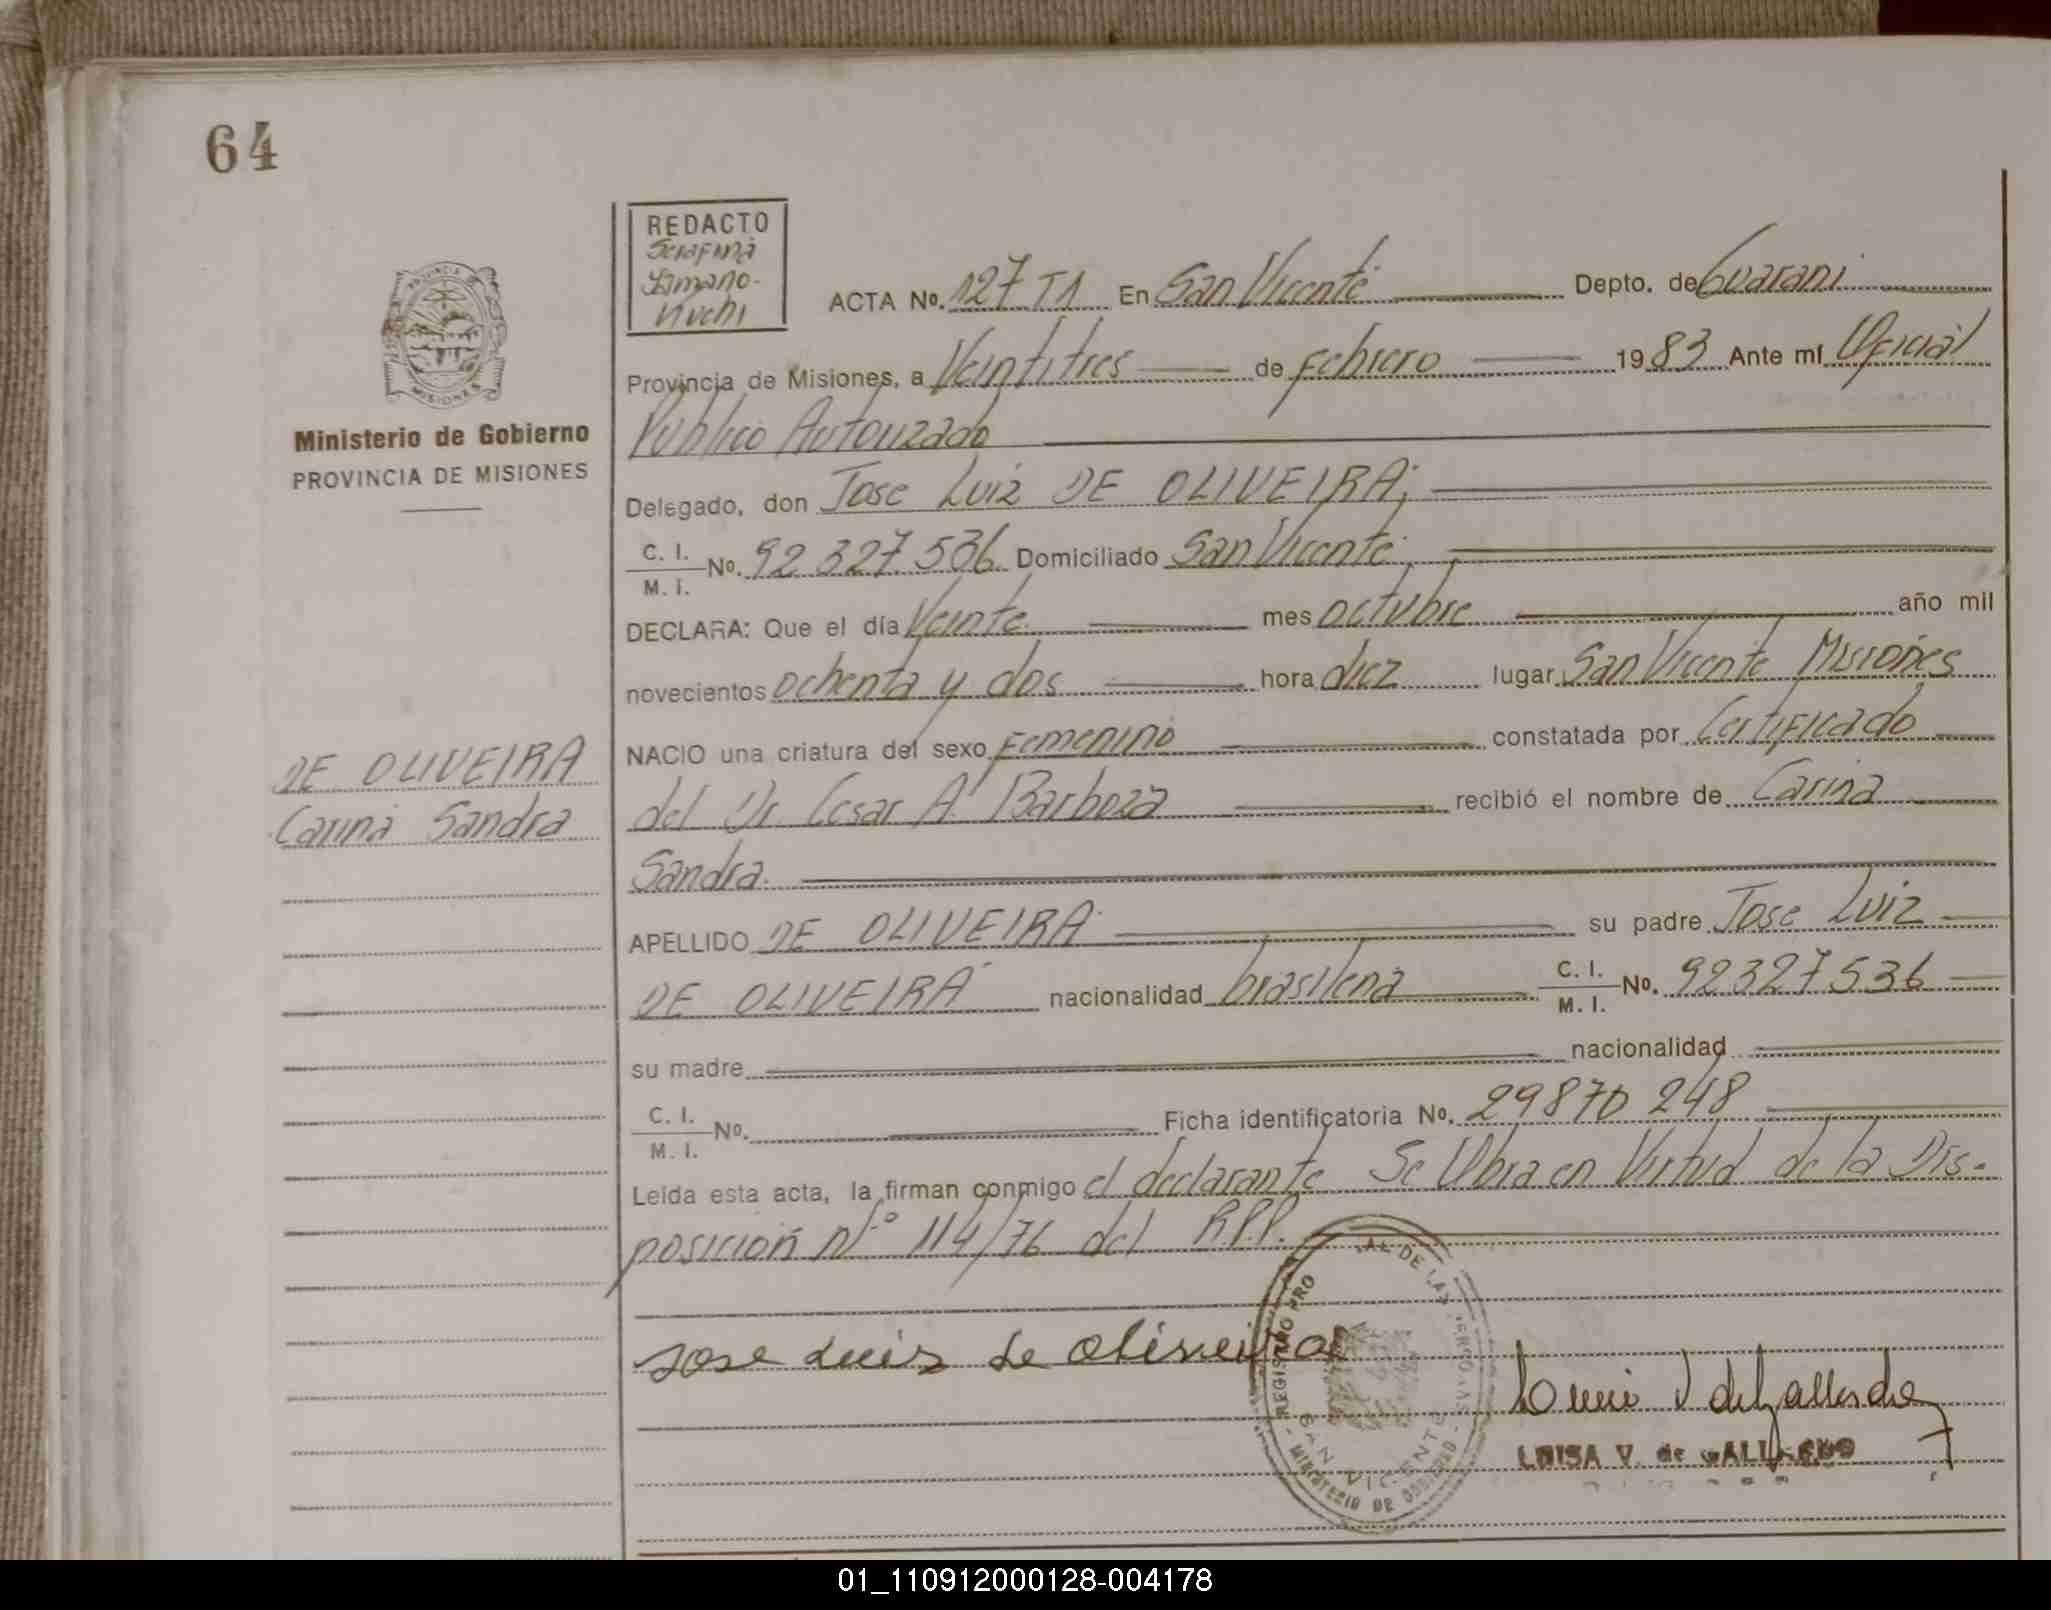 64
REDACTO
Serafina
ACTA No. 127 T1 En San Vicente Depto. de Guarani
Provincia de Misiones, a Veintitres de febrero 1983 Ante mí Oficial
Publico Autorizado
Delegado, don Jose Luiz DE OLIVEIRA,
C. I. / M. I. No. 92 327.536 Domiciliado San Vicente
DECLARA: Que el día Veinte mes octubre año mil
novecientos ochenta y dos hora diez lugar San Vicente Misiones
NACIO una criatura del sexo Femenino constatada por Certificado
del Dr. Cesar A. Barboza recibió el nombre de Carina
Sandra
APELLIDO DE OLIVEIRA su padre Jose Luiz
DE OLIVEIRA nacionalidad brasileña C. I. / M. I. No. 92327536
su madre nacionalidad
C. I. / M. I. No. Ficha identificatoria No. 29870 248
Leída esta acta, la firman conmigo el declarante Se Obra en Virtud de la Dis-
posicion Nº 114/76 del R.P.P.
Jose Luis de oliveira
LUISA V. de GALLARDO
PROVINCIA DE
MISIONES
Ministerio de Gobierno
PROVINCIA DE MISIONES
DE OLIVEIRA
Carina Sandra
REGISTRO PRO AL DE LAS
SAN VICENTE
MINISTERIO DE GOBIERNO
01_110912000128-004178